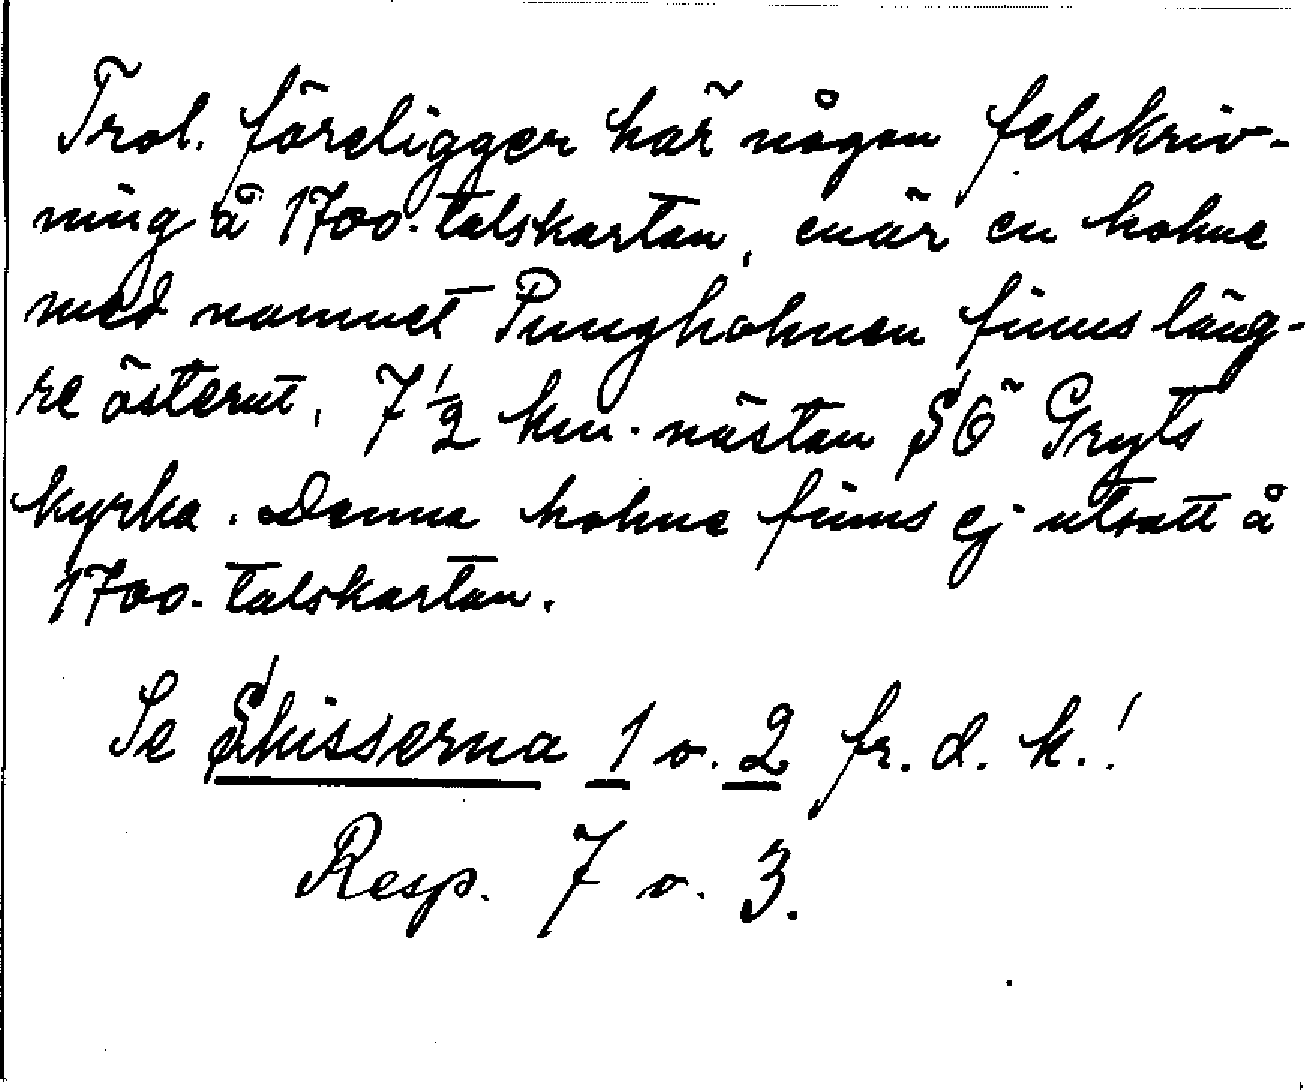 Trol. föreligger här någon felskriv-
ning å 1700-talskartan, enär en holme
med namnet Pungholmen finns läng-
re österut, 7 1/2 km. nästan SÖ Gryts
kyrka. Denna holme finns ej utsatt å
1700-talskartan.
Se Skisserna 1 o. 2 fr. d. k.!
Resp. 7 o. 3.